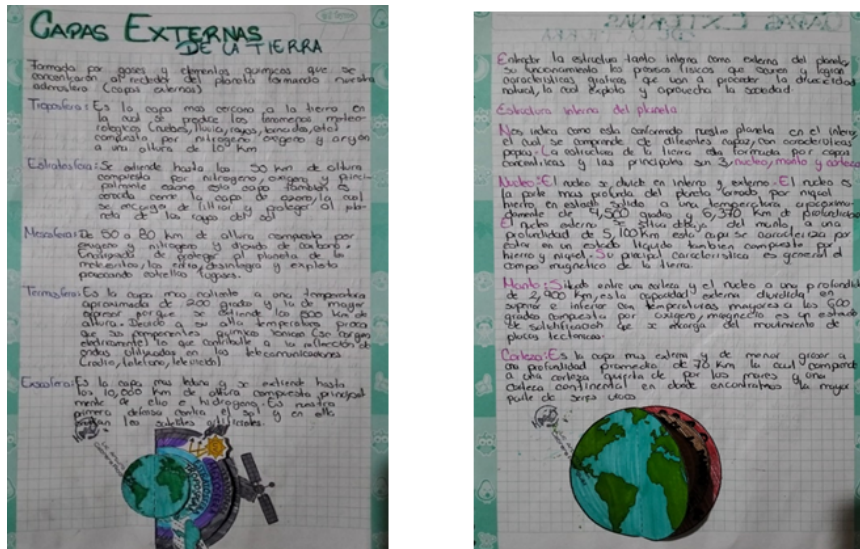 CAPAS EXTERNAS
DE LA TIERRA
Formada por gases y elementos quimicos que se
concentrarón al rededor del planeta formando nuestra
(capas externas)
Troposfera: Es la capa mas cercana a la tierra en
la cual se produce los fenomenos meteo-
rologicos (nubes, lluvia, rayos, etc)
compuesta por nitrogeno oxigeno y argón
a una altura de 10 km
Estratosfera: Se extiende hasta los 50 km de altura
compuesta por nitrogeno, oxigeno y princi-
palmente ozono esta capa tambien es
conocida como la capa de ozono, la cual
se encarga de filtrar y proteger al pla-
neta de los rayos del sol
Mesosfera: De 50 a 80 km de altura compuesta por
oxigeno y nitrogeno y dioxido de carbono.
Encargada de proteger al planeta de los
meteoritos, los desintegra y explota
provocando estrellas fugases.
Termosfera: Es la capa mas caliente a una temperatura
aproximada de 200 grados y la de mayor
porque se extiende los 600 km de
altura. Devido a su alta temperatura provoca
que sus componentes quimicos (se cargan
electricamente) lo que contribulle a la reflección de
ondas utilizadas en las telecomunicaciones
(radio, telefono, televición)
Exosfera: Es la capa mas lejana y se extiende hasta
los 10,000 km de altura compuesta principal
mente de elio e hidrogeno. Es nuestra
primera defensa contra el sol y en ella
los satelites artificiales.
Entender la estructura tanto interna como externa del planeta
su funcionamiento los procesos fisicos que ocurren y logran
caracteristicas que van a proceder la diversidad
natural, la cual explota y aprovecha la sociedad.
Estructura interna del planeta
Nos indica como esta conformado nuestro planeta en el interior
el cual se comprende de diferentes capas, con caracteristicas
propias. La estructura de la tierra esta formada por capas
concentricas y las principales son 3, nucleo, manto y corteza
Nucleo: El nucleo se divide en interno y externo. El nucleo es
la parte mas profunda del planeta formado por niquel
hierro, en estado solido a una temperatura aproxima-
damente de 4,500 grados y 6,370 km de profundidad
El nucleo externo se situa debajo del manto a una
profundidad de 5,100 km esta capa se caracteriza por
estar en un estado liquido tambien compuesto por
hierro y niquel. Su principal caracteristica es general el
campo magnetico de la tierra.
Manto: Situado entre una corteza y el nucleo a una profundid
de 2,900 km, esta capacidad externa dividida en
superior e inferior con temperaturas mayores a los 600
grados compuesta por oxigeno, magnecio es un estado
de que se encarga del movimiento de
placas tectonicas.
Corteza: Es la capa mas externa y de menor grosor a
una profundidad promedio de 70 km la cual comprende
a una corteza por los mares y una
corteza continental en donde encontramos la mayor
parte de seres vivos